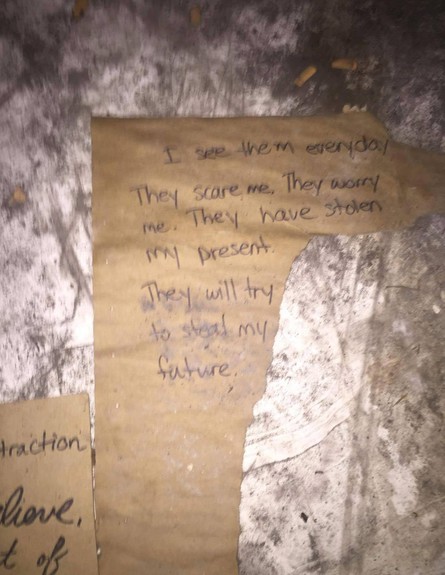 I see them everyday
They scare me. They worry
me. They have stolen
my present.
They will try
to steal my
future.
traction
lieve.
t of